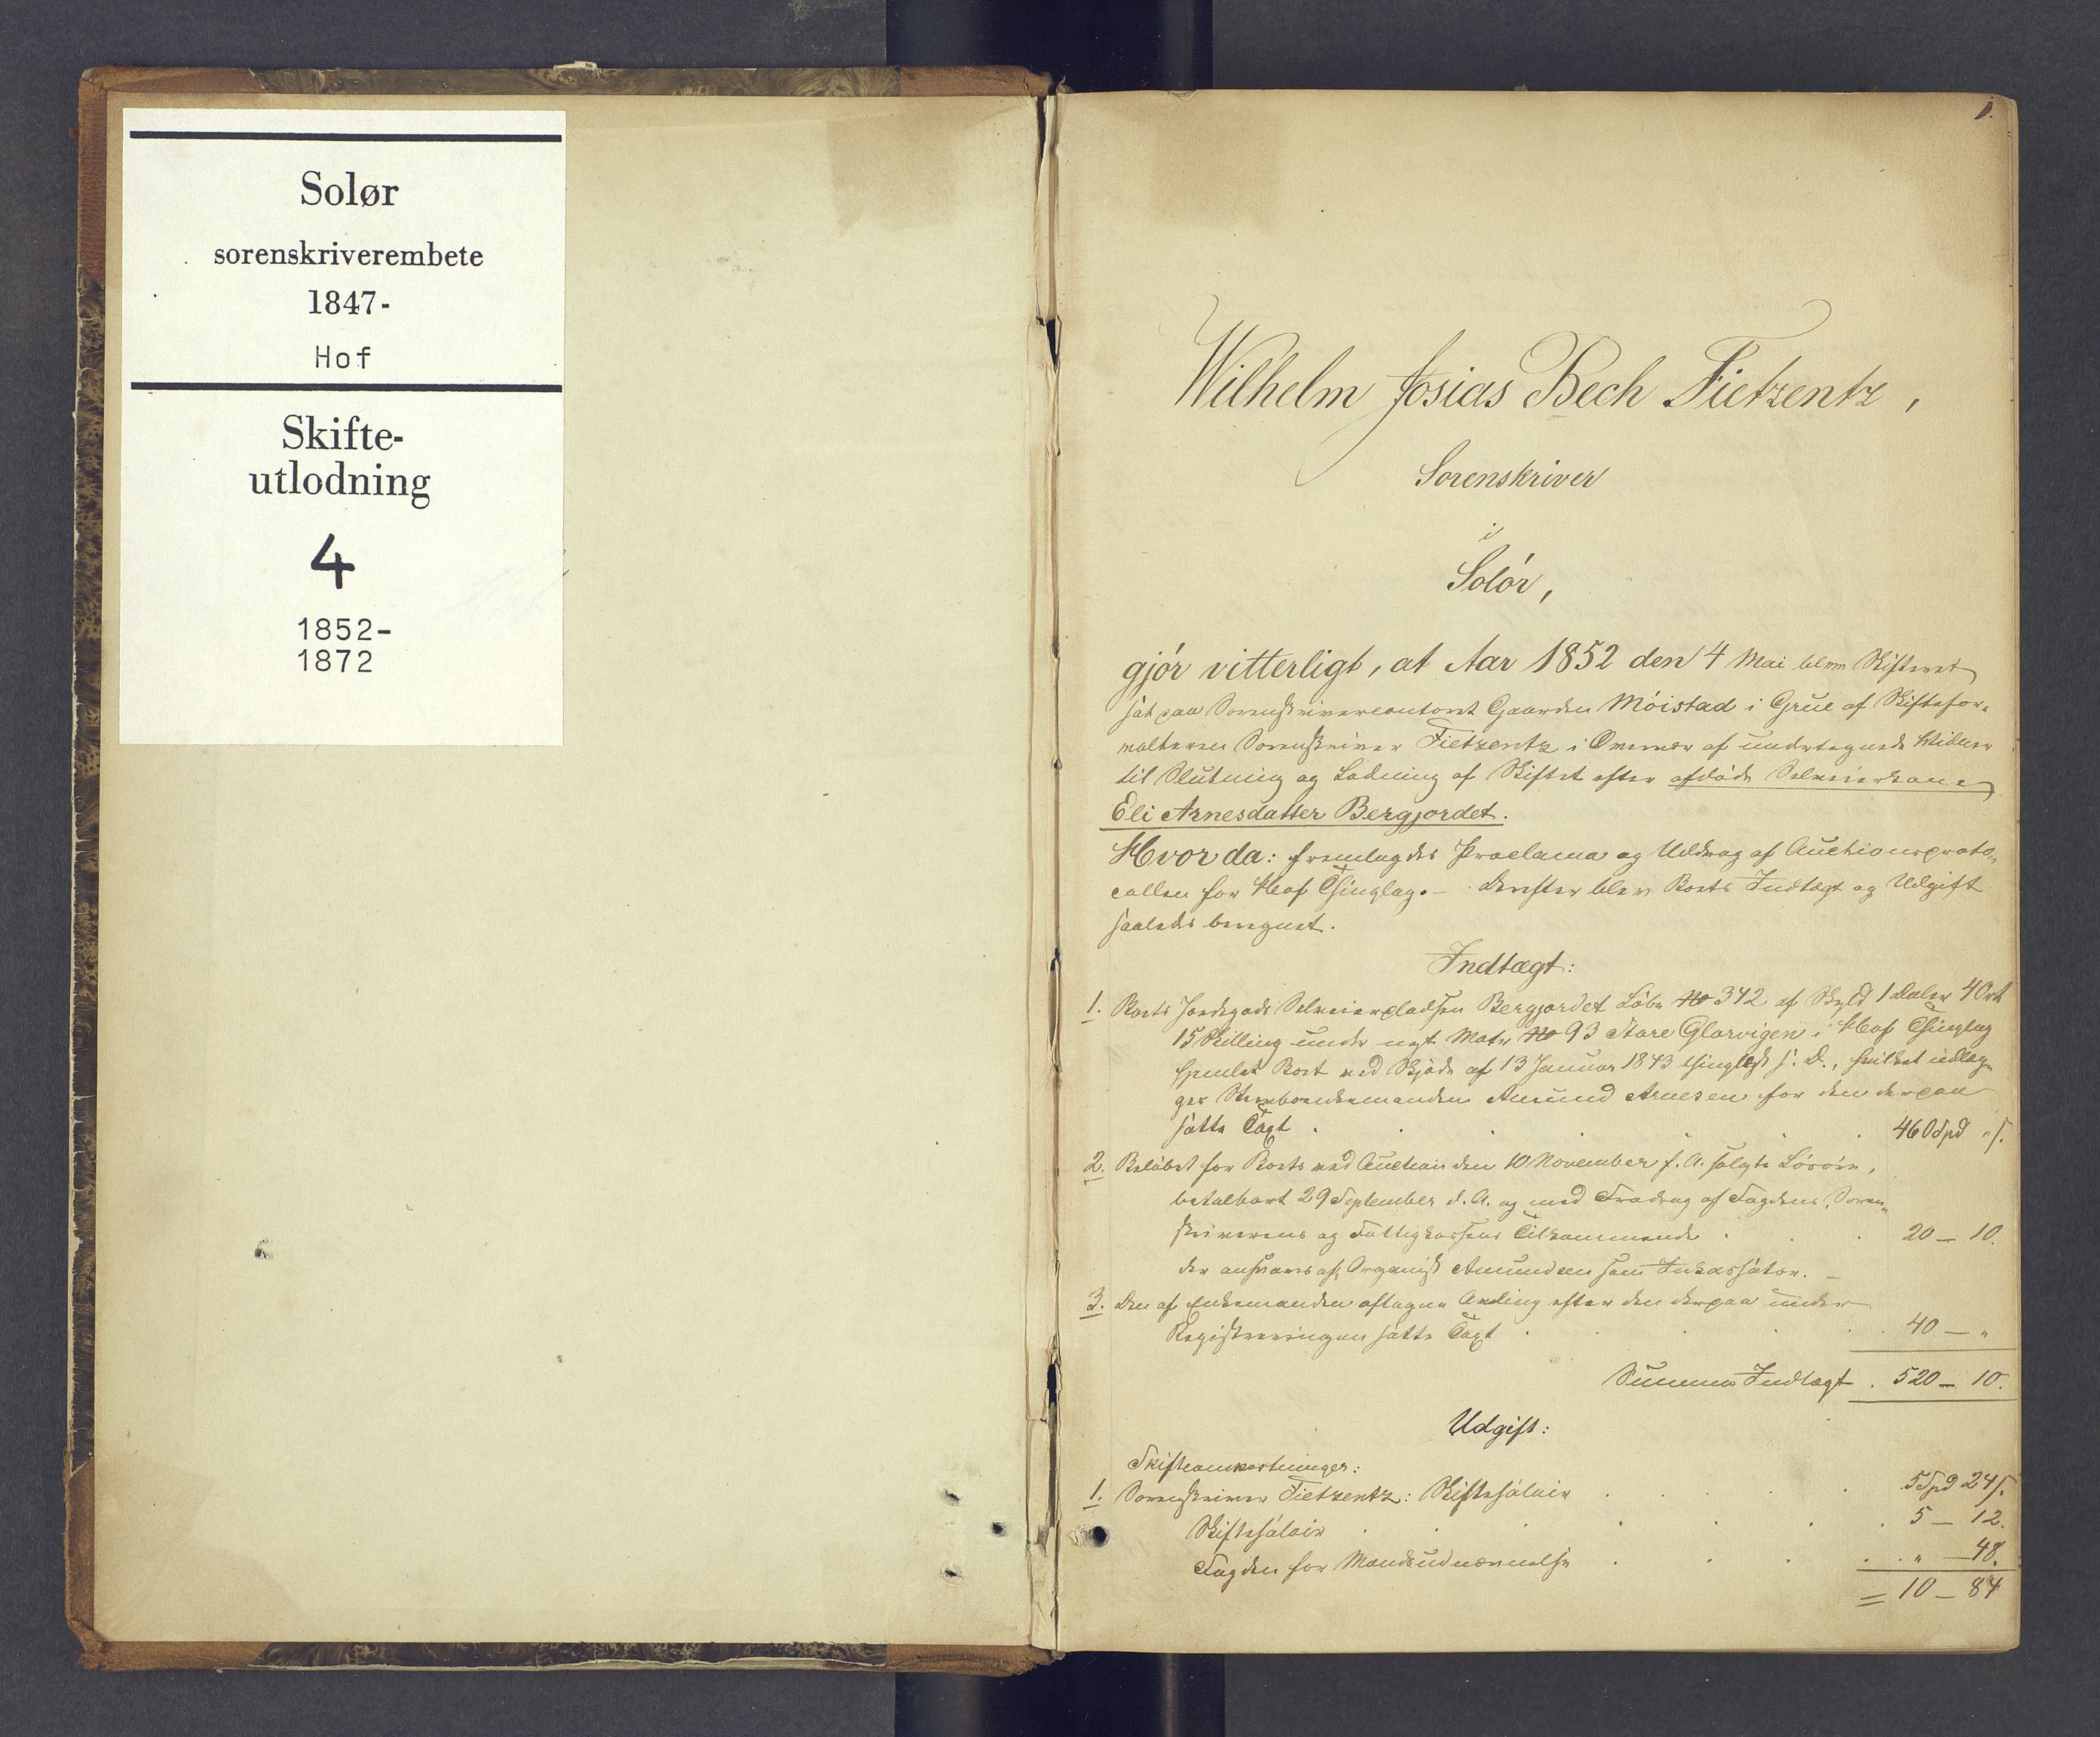 Solør
sorenskriverembete
1847-
Hof
Skifte-
utlodning
4
1852-
1872
1.
Wilhelm Josias Bech Fietzentz,
Sorenskriver
i
Solör,
gjör vitterligt, at Aar 1852 den 4 Mai blev Skifteret
sat paa Sorenskrivercontoret Gaarden Möistad i Grue af Skiftefor-
valteren Sorenskriver Fietzentz i Overvær af undertegnede Vidner
til Slutning og Lodning af Skiftet efter afdøde Selveierkone
Eli Arnesdatter Bergjordet.
Hvor da: fremlagdes Proclama og Uddrag af Auctionsproto-
collen for Hof Thinglag. - Derefter blev Boets Indtægt og Udgift
saaledes beregnet.
Indtægt:
1. Boets Jordegods Selveierpladsen Bergjordet Löbe No 342 af Skyld 1 Daler 4 Ort
15 Skilling under nyt Matr No 93 Store Glorvigen i Hof Thinglag
hjemlet Boet ved Skjöde af 13 Januar 1843 thinglyst s. D., hvilket udlæg-
ges Sterboenkemanden Amund Arnesen for den derpaa
satte Taxt . 460 Spd " s.
2. Belöbet for Boets ved Auction den 10 November f. A. solgte Lösöre,
betalbart 29 September d. A. og med Fradrag af Fogdens, Soren-
skriverens og Fattigkassens Tilkommende . 20 - 10.
der ansvares af Organist Amundsen som Inkassator. -
3. Den af Enkemanden aftagne Avling efter den derpaa under
Registreringen satte Taxt . 40 - "
Summa Indtægt . 520 - 10.
Udgift:
Skifteomkostninger:
1. Sorenskriver Fietzentz: Skiftesalair . 5 Spd 24 s.
Skiftesalair . 5 - 12.
Fogden for Mandsudnævnelse . " - 48.
= 10 - 84